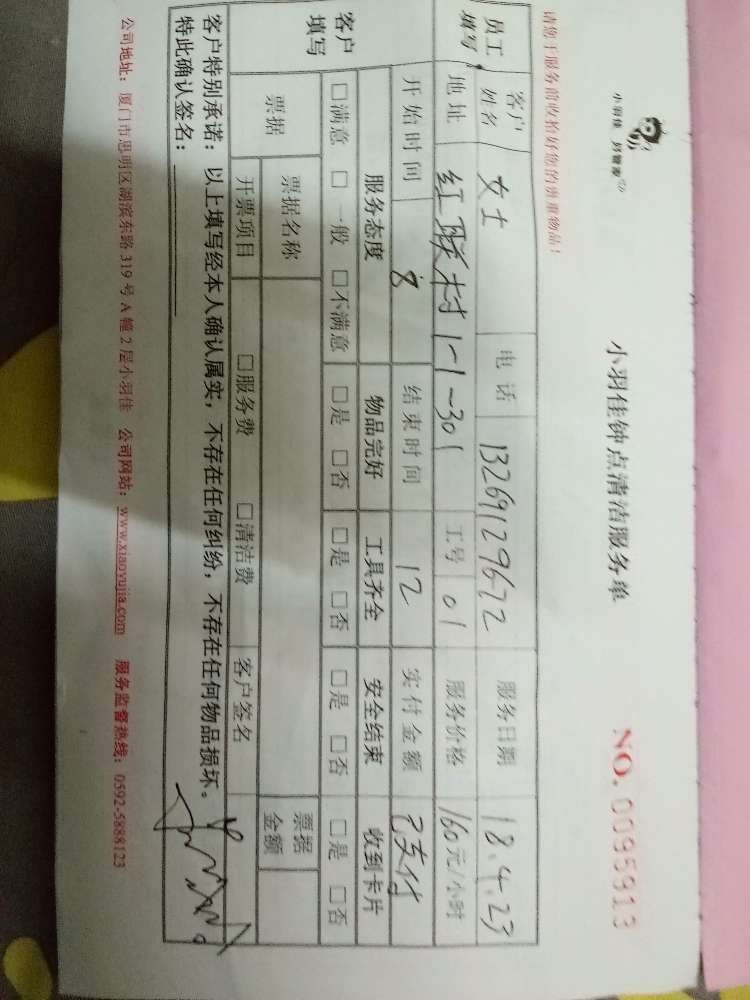 小羽佳 好管家
小羽佳钟点清洁服务单
NO. 0095913
请您于服务前收拾好您的贵重物品！
员工填写 客户姓名 女士 电话 13269129672 服务日期 18.4.23
地址 红联村 1-1-301 工号 01 服务价格 160元/小时
开始时间 8 结束时间 12 实付金额 已支付
客户填写 服务态度 物品完好 工具齐全 安全结束 收到卡片
□满意 □一般 □不满意 □是 □否 □是 □否 □是 □否 □是 □否
票据 票据名称 票据金额
开票项目 □服务费 □清洁费 客户签名
客户特别承诺：以上填写经本人确认属实，不存在任何纠纷，不存在任何物品损坏。
特此确认签名：
公司地址：厦门市思明区湖滨东路 319 号 A 幢 2 层小羽佳 公司网站：www.xiaoyujia.com 服务监督热线：0592-5888123